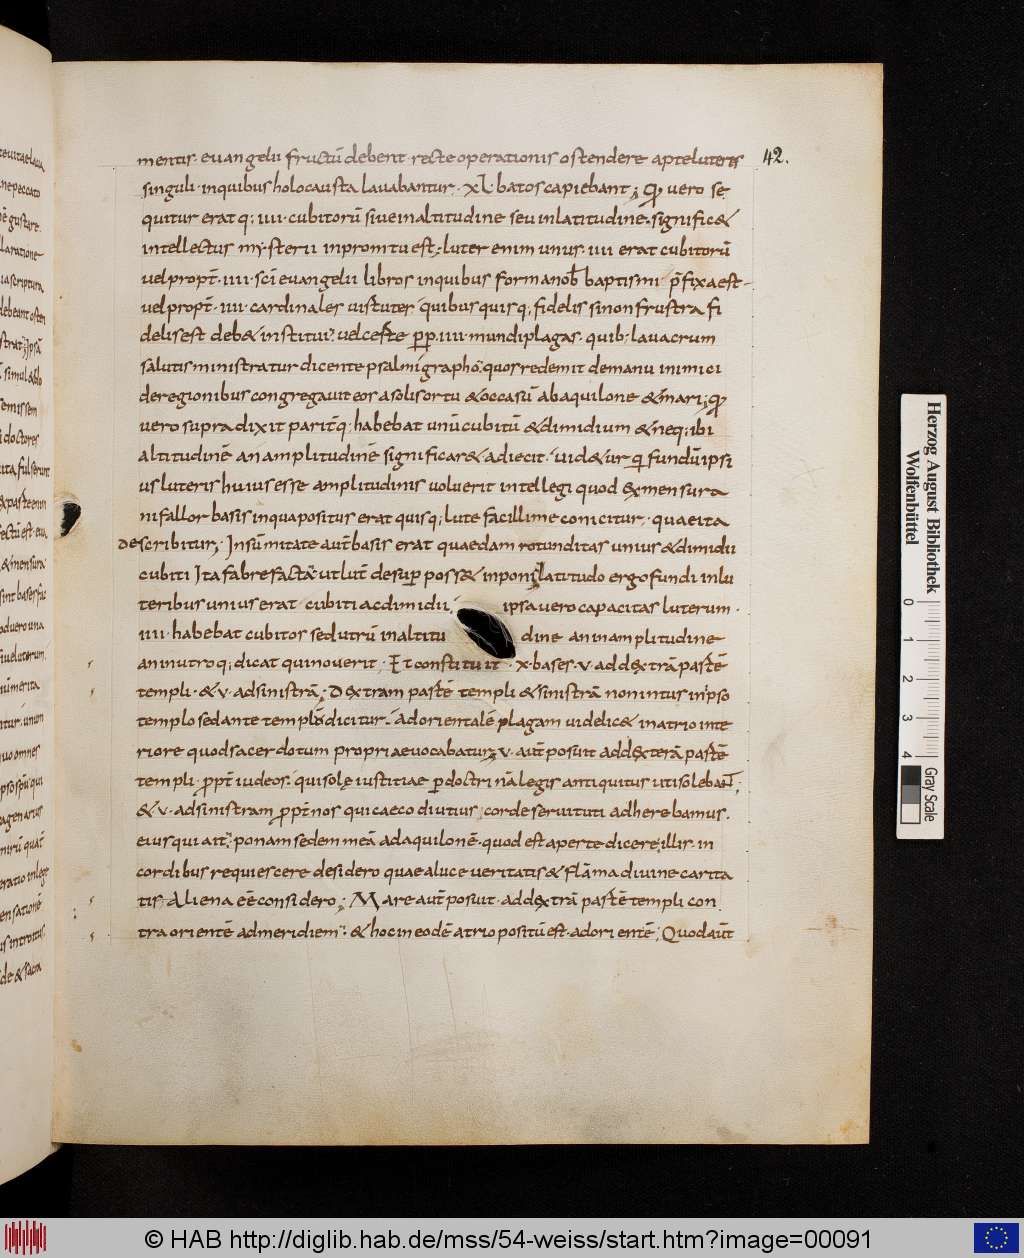 mentis. euangelii fructū debent. recte operationis ostendere apteluteres
singuli. inquibus holocausta lauabantur. xl. batos capiebant; Qđ uero se
quitur eratq; iiii. cubitorū siue inaltitudine seu inlatitudine. signific&
intellectus mysterii inpromtu est; luter enim unus. iiii erat cubitorū
uel propt̄. iiii. sc̄i euangelii libros inquibus forma nob̄ baptismi p̄fixa est
uel propt̄. iiii. cardinales uirtutes quibus quisq; fidelis sinon frustra fi
delis est deb& institui. uel certe ꝓp̄. iiii. mundi plagas. quib; lauacrum
salutis ministratur dicente psalmigrapho. quos redemit demanu inimici
deregionibus congregauit eos asolis ortu & occasū abaquilone & mari; Qđ
uero supra dixit parit̄q; habebat unū cubitū & dimidium & neq; ibi
altitudinē an amplitudinē significar& adiecit. uid&ur qđ fundū ipsi
us luteris huius esse amplitudinis uoluerit intellegi quod ex mensura
ni fallor basis inqua positus erat quisq; lute facillime conicitur. quae ita
describitur; In sūmitate aut̄ basis erat quaedam rotunditas unius & dimidii
cubiti Ita fabrefacta ut lut̄ desup̄ poss& inponi latitudo ergo fundi inlu
teribus unius erat cubiti ac dimidii; ipsa uero capacitas luterum.
iiii. habebat cubitos sed utrū inaltitu dine an inamplitudine
an inutroq; dicat qui nouerit. Et constituit. x. bases. v. ad dextrā partē
templi. & v. ad sinistrā; Dextram partē templi & sinistrā non intus inipso
templo sed ante templū dicitur. ad orientalē plagam uidelic& inatrio inte
riore quod sacerdotum proprie uocabatur; v. aut̄ posuit ad dexterā partē
templi. ꝓpt̄ iudeos. qui sole iustitiae p̄ doctrinā legis antiquitus uti solebant;
& v. ad sinistram ꝓpt̄ nos qui caeco diutius corde seruituti adherebamus.
eius qui ait. ponam sedem meā adaquilonē. quod est aperte dicere; illis. in
cordibus requiescere desidero quae a luce ueritatis & flāma diuine carita
tis. Aliena eē considero; Mare aut̄ posuit. ad dextrā partē templi con
tra orientē ad meridiem. & hoc in eodē atrio positū est. ad orientē; Quod aut̄
42.
Herzog August Bibliothek
Wolfenbüttel
0 1 2 3 4
Gray Scale
© HAB http://diglib.hab.de/mss/54-weiss/start.htm?image=00091